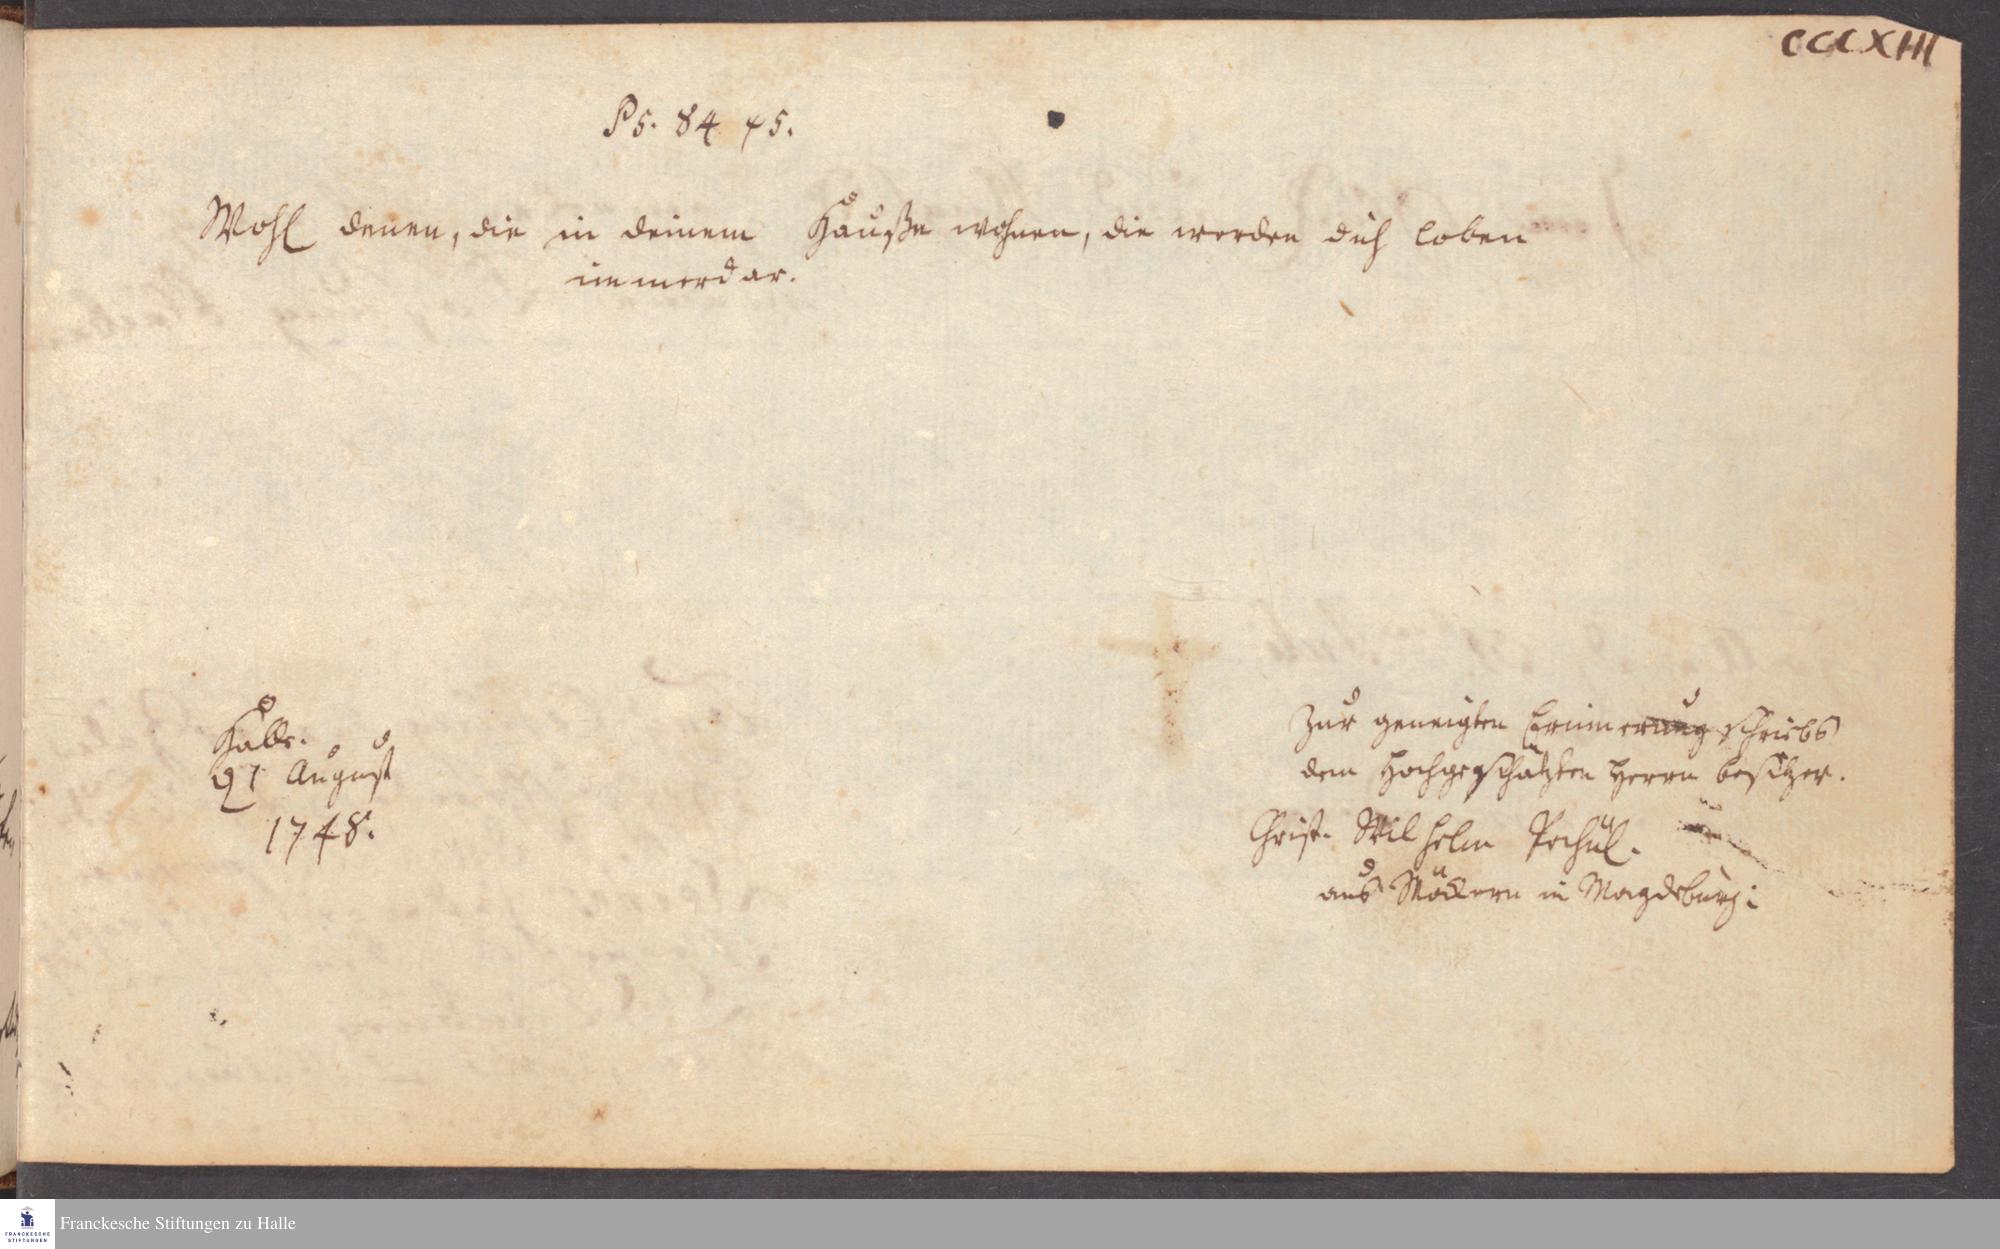 CCCXIII
Ps. 84 v 5.
Wohl denen, die in deinem Hauße wohnen, die werden dich loben
immerdar.
Halle.
d 1 August
1748.
Zur geneigten Erinnerung schriebs
dem Hochgeschätzten Herrn besitzer.
Christ. Wilhelm
aus Möckern in Magdeburg:
Franckesche Stiftungen zu Halle
FRANCKESCHE
STIFTUNGEN